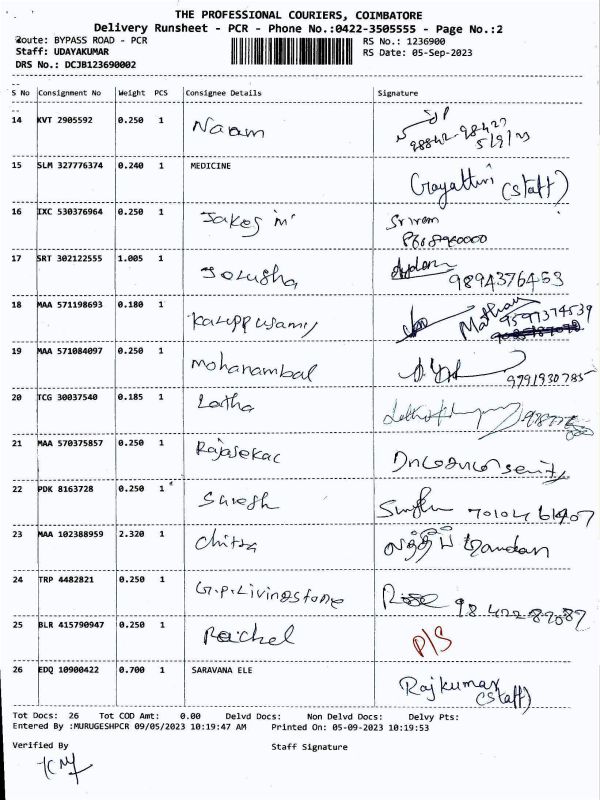 THE PROFESSIONAL COURIERS, COIMBATORE
Delivery Runsheet - PCR - Phone No.:0422-3505555 - Page No.:2
Route: BYPASS ROAD - PCR RS No.: 1236900
Staff: UDAYAKUMAR RS Date: 05-Sep-2023
DRS No.: DCJB123690002
S No Consignment No Weight PCS Consignee Details Signature
14 KVT 2905592 0.250 1 Naram 98842-98427
5/9/23
15 SLM 327776374 0.240 1 MEDICINE Gayathri (staff)
16 IXC 530376964 0.250 1 Jakes m Sriram
17 SRT 302122555 1.005 1 Jorusha 9894376453
18 MAA 571198693 0.180 1 Karuppusamy Mathan 9597374539
19 MAA 571084097 0.250 1 Mohanambal 9791930785
20 TCG 30037540 0.185 1 Latha
21 MAA 570375857 0.250 1 Rajasekar
22 PDK 8163728 0.250 1 Suresh
23 MAA 102388959 2.320 1 Chitra
24 TRP 4482821 0.250 1 G.P.Livingstone Rose
25 BLR 415790947 0.250 1 Rachel P/S
26 EDQ 10900422 0.700 1 SARAVANA ELE Rajkumar
(staff)
Tot Docs: 26 Tot COD Amt: 0.00 Delvd Docs: Non Delvd Docs: Delvy Pts:
Entered By :MURUGESHPCR 09/05/2023 10:19:47 AM Printed On: 05-09-2023 10:19:53
Verified By Staff Signature